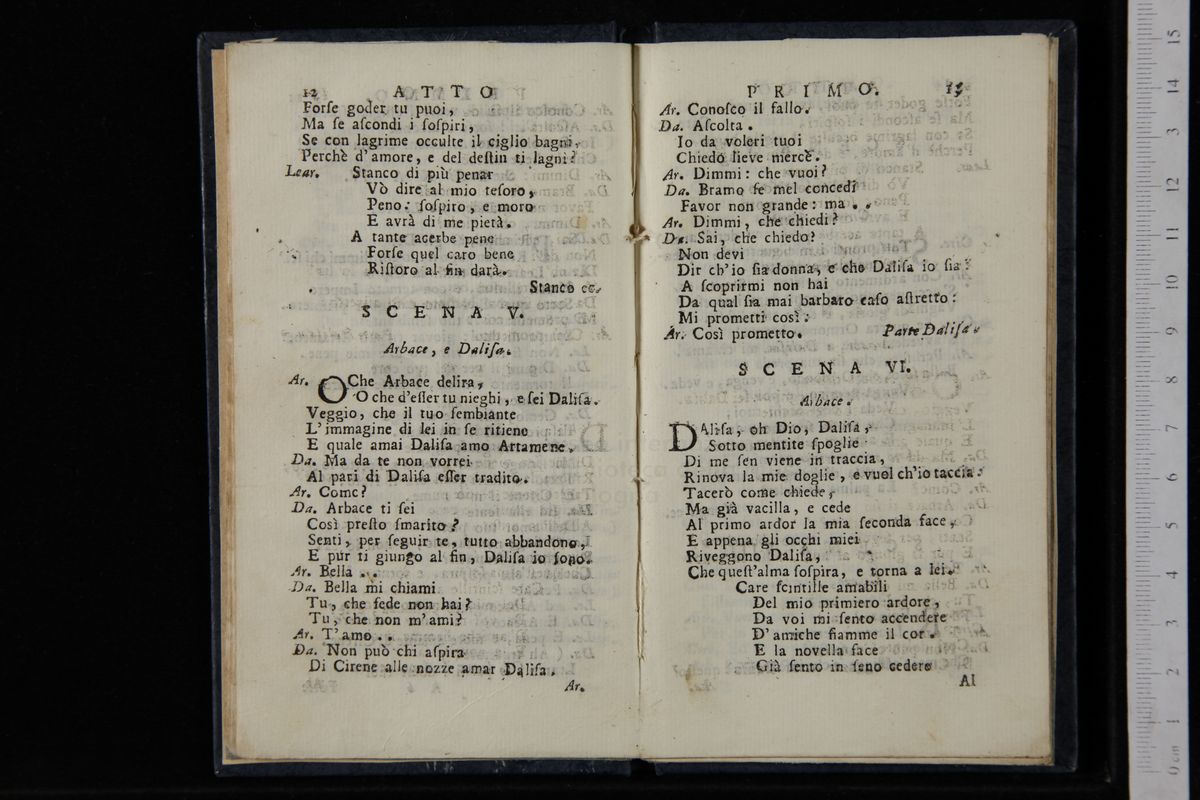 12 ATTO
Forſe goder tu puoi,
Ma ſe aſcondi i ſoſpiri,
Se con lagrime occulte il ciglio bagni,
Perchè d'amore, e del deſtin ti lagni?
Lear. Stanco di più penar
Vò dire al mio teſoro,
Peno: ſoſpiro, e moro
E avrà di me pietà.
A tante acerbe pene
Forſe quel caro bene
Riſtoro al fin darà.
Stanco ec.
SCENA V.
Arbace, e Daliſa.
Ar. OChe Arbace delira,
O che d'eſſer tu nieghi, e ſei Daliſa.
Veggio, che il tuo ſembiante
L'immagine di lei in ſe ritiene
E quale amai Daliſa amo Artamene.
Da. Ma da te non vorrei
Al pari di Daliſa eſſer tradito.
Ar. Come?
Da. Arbace ti ſei
Così preſto ſmarito?
Senti, per ſeguir te, tutto abbandono,
E pur ti giungo al fin, Daliſa io ſono.
Ar. Bella . .
Da. Bella mi chiami
Tu, che fede non hai?
Tu, che non m'ami?
Ar. T'amo . .
Da. Non può chi aſpira
Di Cirene alle nozze amar Daliſa.
Ar.
PRIMO. 13
Ar. Conoſco il fallo.
Da. Aſcolta.
Io da voleri tuoi
Chiedo lieve mercè.
Ar. Dimmi: che vuoi?
Da. Bramo ſe mel concedi
Favor non grande: ma . .
Ar. Dimmi, che chiedi?
Da. Sai, che chiedo?
Non devi
Dir ch'io ſia donna, e che Daliſa io ſia:
A ſcoprirmi non hai
Da qual ſia mai barbaro caſo aſtretto:
Mi prometti così:
Ar. Così prometto. Parte Daliſa.
SCENA VI.
Arbace.
DAliſa, oh Dio, Daliſa,
Sotto mentite ſpoglie
Di me ſen viene in traccia,
Rinova la mie doglie, e vuol ch'io taccia:
Tacerò come chiede,
Ma già vacilla, e cede
Al primo ardor la mia ſeconda face,
E appena gli occhi miei
Riveggono Daliſa,
Che queſt'alma ſoſpira, e torna a lei.
Care ſcintille amabili
Del mio primiero ardore,
Da voi mi ſento accendere
D'amiche fiamme il cor.
E la novella face
Già ſento in ſeno cedere
Al
0 cm 1 2 3 4 5 6 7 8 9 10 11 12 13 14 15